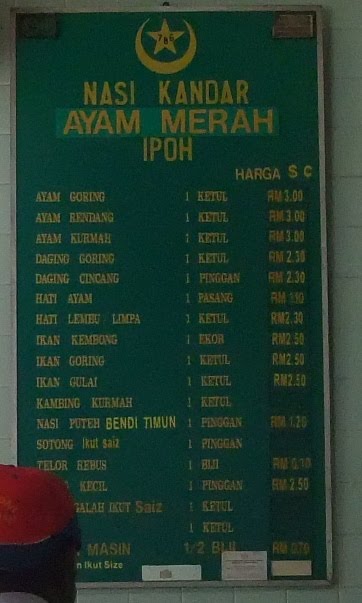 786
NASI KANDAR
AYAM MERAH
IPOH
HARGA S C
AYAM GORING 1 KETUL RM 3.00
AYAM RENDANG 1 KETUL RM 3.00
AYAM KURMAH 1 KETUL RM 3.00
DAGING GORING 1 KETUL RM 2.30
DAGING CINCANG 1 PINGGAN RM 2.30
HATI AYAM 1 PASANG RM
HATI LEMBU LIMPA 1 KETUL RM2.30
IKAN KEMBONG 1 EKOR RM2.50
IKAN GORING 1 KETUL RM2.50
IKAN GULAI 1 KETUL RM2.50
KAMBING KURMAH 1 KETUL
NASI PUTEH BENDI TIMUN 1 PINGGAN RM 1.20
SOTONG Ikut saiz 1 PINGGAN
TELOR REBUS 1 BIJI RM
KECIL 1 PINGGAN RM 2.50
GALAH IKUT Saiz 1 KETUL
1 KETUL
MASIN 1/2 BIJI RM 0.70
Ikut Size